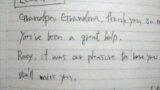 Grandpa, Grandma, thank you so
You've been a great help.
Rosy, it was our pleasure to have you
shall miss you.